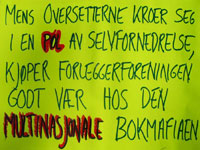 MENS OVERSETTERNE KROER SEG
I EN POL AV SELVFORNEDRELSE,
KJØPER FORLEGGERFORENINGEN
GODT VÆR HOS DEN
MULTINASJONALE BOKMAFIAEN